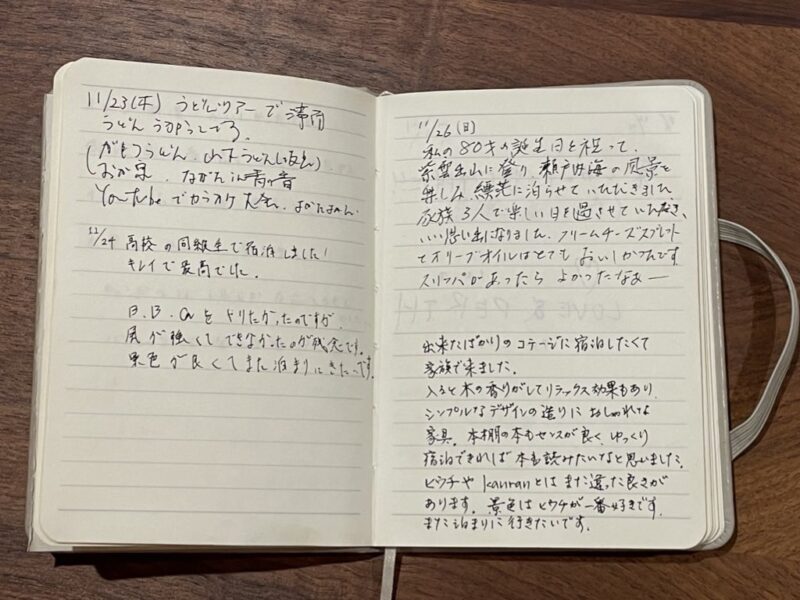 11/23(木) うどんツアーで満腹
うどん うまかってる
がもううどん 山下うどん
おか泉 ながたin香の香
YouTubeでカラオケ大会
11/24 高校の同級生で宿泊しました!
キレイで最高でした。
B.B.Qをヤリたかったのですが、
風が強くてできなかったのが残念です。
景色が良くてまた泊まりにきたいです。
11/26(日)
私の80才の誕生日を祝って、
紫雲出山に登り、瀬戸内海の風景を
楽しみ、に泊らせていただきました
家族3人で楽しい日を過させていただき、
いい思い出になりました。クリームチーズスプレット
とオリーブオイルはとても おいしかったです
スリッパがあったら よかったなぁー
出来たばかりのコテージに宿泊したくて
家族で来ました。
入ると木の香りがしてリラックス効果もあり、
シンプルなデザインの造りに おしゃれな
家具。本棚の本もセンスが良く、ゆっくり
宿泊できれば本を読みたいなと思いました。
ヒウチや kanranとは また違った良さが
あります。景色はヒウチが一番好きです。
また泊まりに行きたいです。